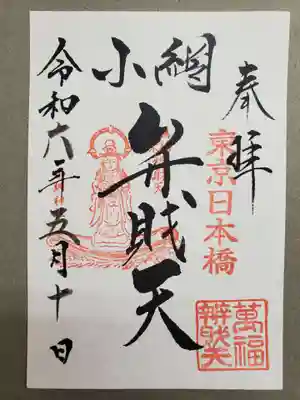 奉拝
東京日本橋
小網
弁財天
萬福
辨財天
令和六年五月十日